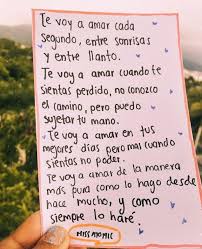 Te voy a amar cada
segundo, entre sonrisas
y entre llanto.
Te voy a amar cuando te
sientas perdido, no conozco
el camino, pero puedo
sujetar tu mano.
Te voy a amar en tus
mejores días pero mas cuando
sientas no poder.
Te voy a amar de la manera
más pura como lo hago desde
hace mucho, y como
siempre lo haré.
MISS ATOMIC